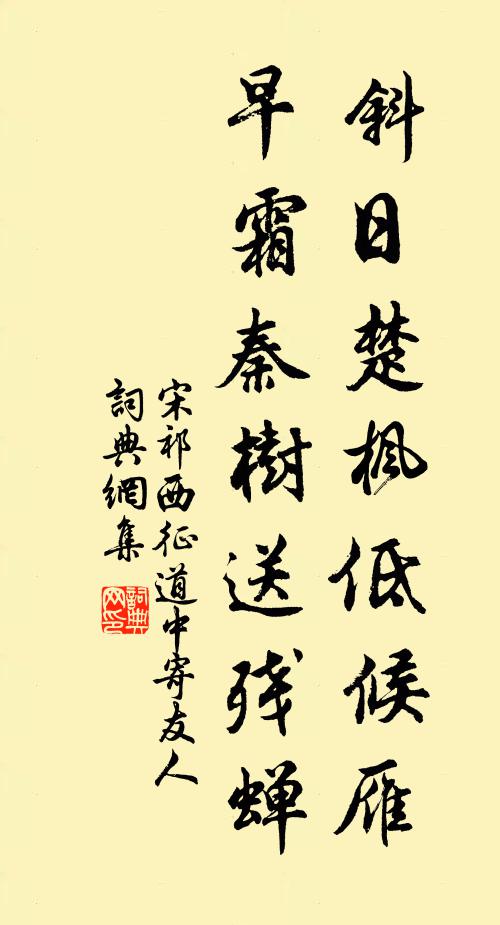 斜日楚枫低候雁
早霜秦樹送残蝉
宋祁西征道中寄友人
詞典網集
詞典
网印